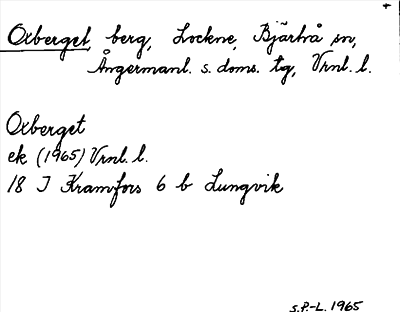 Oxberget, berg, Lockne, Bjärtrå sn,
Ångermanl. s. doms. tg, Vrnl. l.
Oxberget
ek (1965) Vrnl. l.
18 J Kramfors 6 b Lungvik
S.P.-L. 1965